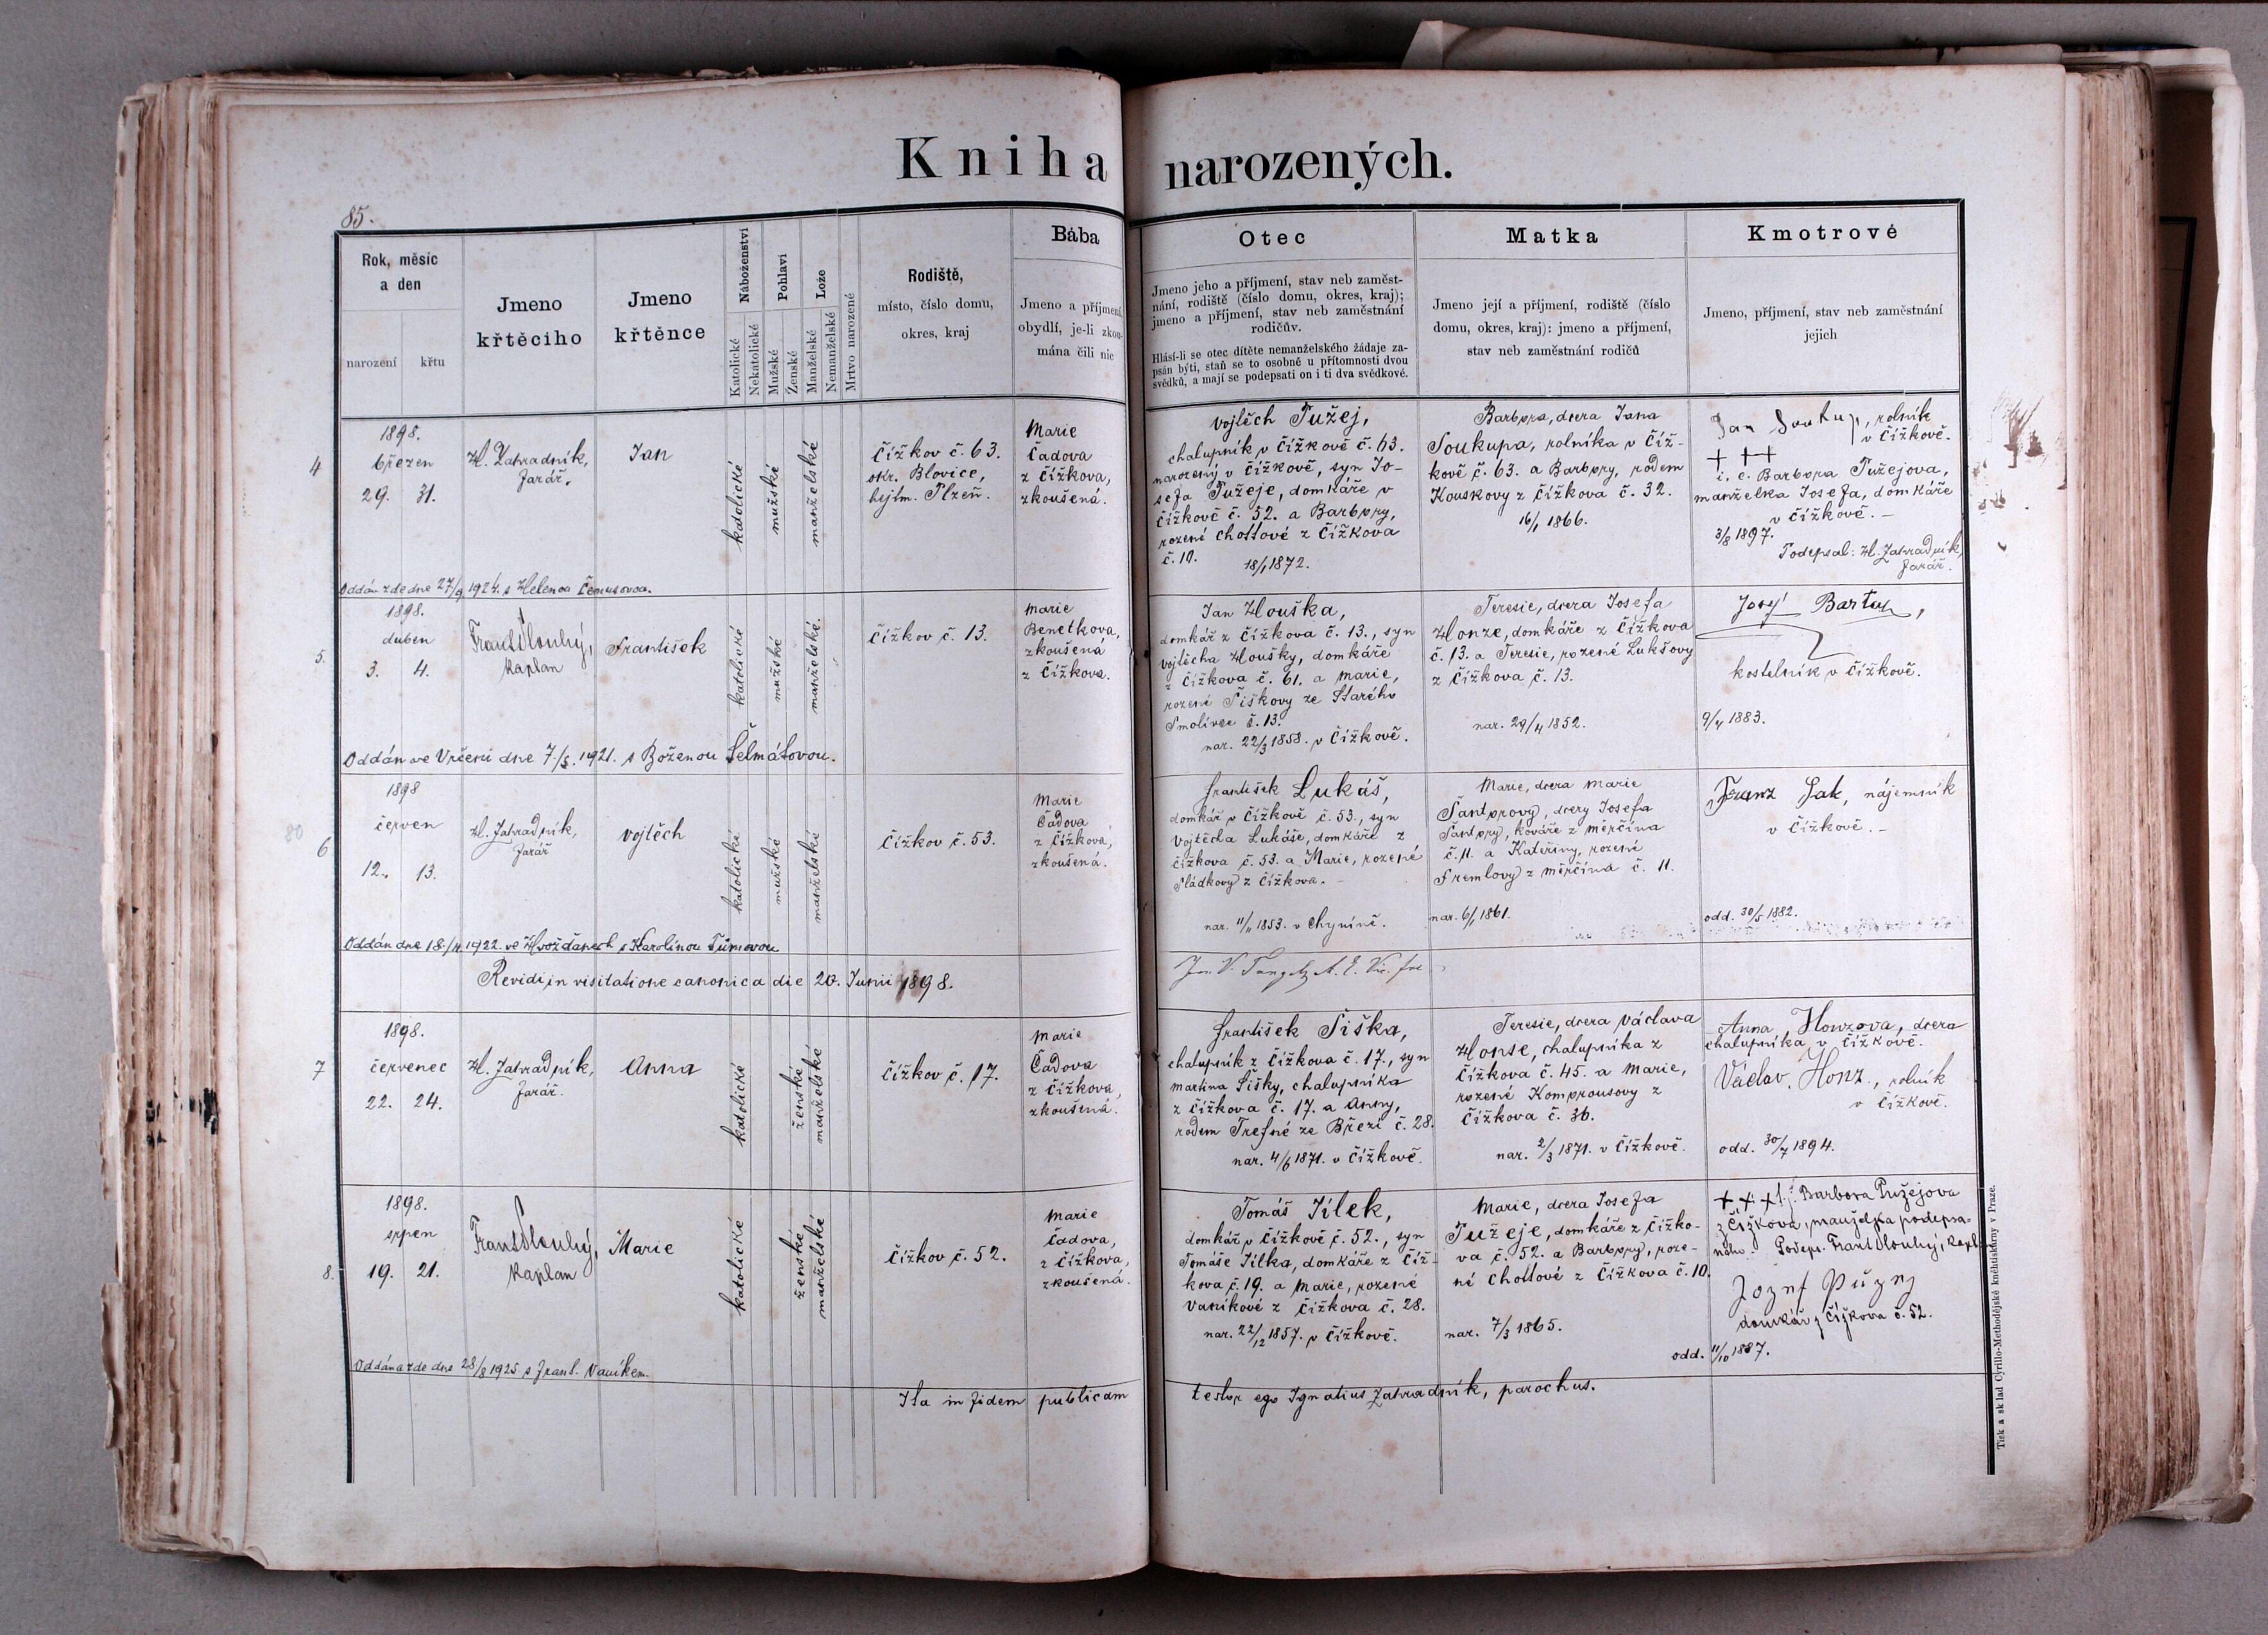 Kniha narozených.
85.
Rok, měsíc
a den
narození
křtu
Jmeno
křtěcího
Jmeno
křtěnce
Náboženství
Katolické
Nekatolické
Pohlaví
Mužské
Ženské
Lože
Manželské
Nemanželské
Mrtvo narozené
Rodiště,
místo, číslo domu,
okres, kraj
Bába
Jmeno a příjmení,
obydlí, je-li zkou-
mána čili nic
Otec
Jmeno jeho a příjmení, stav neb zaměst-
nání, rodiště (číslo domu, okres, kraj);
jmeno a příjmení, stav neb zaměstnání
rodičův.
Hlásí-li se otec dítěte nemanželského žádaje za-
psán býti, staň se to osobně u přítomnosti dvou
svědků, a mají se podepsati on i ti dva svědkové.
Matka
Jmeno její a příjmení, rodiště (číslo
domu, okres, kraj): jmeno a příjmení,
stav neb zaměstnání rodičů
Kmotrové
Jmeno, příjmení, stav neb zaměstnání
jejich
4
1898.
březen
29. 31.
H. Zahradník,
farář.
Jan
katolické
mužské
manželské
Čížkov č. 63.
okr. Blovice,
hejtm. Plzeň.
Marie
Čadova
z Čížkova,
zkoušená.
Vojtěch Tužej,
chalupník v Čížkově č. 63.
narozený v Čížkově, syn Jo-
sefa Tužeje, domkáře v
Čížkově č. 52. a Barbory,
rozené Chottové z Čížkova
č. 10.
18/1 1872.
Barbora, dcera Jana
Soukupa, rolníka v Číž-
kově č. 63. a Barbory, rodem
Kouskovy z Čížkova č. 32.
16/1 1866.
Jan Soukup, rolník
v Čížkově.
+ ++
i. e. Barbora Tužejova,
manželka Josefa, domkáře
v Čížkově. -
3/8 1897.
Podepsal: H. Zahradník,
farář.
Oddán zde dne 27/9 1924. s Helenou
5.
1898.
duben
3. 4.
Frant. Dlouhý,
kaplan
František
katolické
mužské
manželské.
Čížkov č. 13.
Marie
Benetkova,
zkoušená
z Čížkova.
Jan Houška,
domkář z Čížkova č. 13., syn
Vojtěcha Houšky, domkáře
z Čížkova č. 61. a Marie,
rozené Šiškovy ze Starého
Smolivce č. 13.
nar. 22/3 1858. v Čížkově.
Teresie, dcera Josefa
Honze, domkáře z Čížkova
č. 13. a Teresie, rozené Lukšovy
z Čížkova č. 13.
nar. 29/4 1852.
Josef Bartoš,
kostelník v Čížkově.
9/4 1883.
Oddán ve Vrčeni dne 7./5. 1921. s Boženou Šelmátovou.
80
6
1898
červen
12. 13.
H. Zahradník,
farář
Vojtěch
katolické
mužské
manželské
Čížkov č. 53.
Marie
Čadova
z Čížkova,
zkoušená.
František Lukáš,
domkář v Čížkově č. 53., syn
Vojtěcha Lukáše, domkáře z
Čížkova č. 53. a Marie, rozené
Sládkovy z Čížkova. -
nar. 11/11 1853. v Chyníně.
Marie, dcera Marie
Šantorovy, dcery Josefa
Šantory, kováře z Měrčína
č. 11. a Kateřiny, rozené
Fremlovy z Měrčína č. 11.
nar. 6/1 1861.
Franz Gak, nájemník
v Čížkově. -
odd. 30/5 1882.
Oddán dne 18./4. 1922. ve Hvožďanech s Karolínou Tůmovou
Revidi in visitatione canonica die 20. Junii 1898.
7
1898.
červenec
22. 24.
H. Zahradník,
farář.
Anna
katolické
ženské
manželské
Čížkov č. 17.
Marie
Čadova
z Čížkova,
zkoušená.
František Šiška,
chalupník z Čížkova č. 17., syn
Martina Šišky, chalupníka
z Čížkova č. 17. a Anny,
rodem Trefné ze Březí č. 28.
nar. 4/6 1871. v Čížkově.
Teresie, dcera Václava
Honse, chalupníka z
Čížkova č. 45. a Marie,
rozené Komprousovy z
Čížkova č. 36.
nar. 2/3 1871. v Čížkově.
Anna Honzova, dcera
chalupníka v Čížkově.
Václav Honz, rolník
v Čížkově.
odd. 30/7 1894.
8.
1898.
srpen
19. 21.
Frant. Dlouhý,
kaplan
Marie
katolické
ženské
manželské
Čížkov č. 52.
Marie
Čadova,
z Čížkova,
zkoušená.
Tomáš Jílek,
domkář v Čížkově č. 52., syn
Tomáše Jílka, domkáře z Číž-
kova č. 19. a Marie, rozené
Vaníkové z Čížkova č. 28.
nar. 22/12 1857. v Čížkově.
Marie, dcera Josefa
Tužeje, domkáře z Čížko-
va č. 52. a Barbory, roze-
né Chottové z Čížkova č. 10.
nar. 7/3 1865.
+ + + Barbora Tužejova
z Čížkova, manželka podepsa-
ného. Podeps. Frant. Dlouhý, kapl.
domkář z Čížkova č. 52.
odd. 11/10 1887.
Oddána zde dne 28/8 1925 s Frant. Vaníkem.
Ita in fidem publicam testor ego Ignatius Zahradník, parochus.
Tisk a sklad Cyrillo-Methodějské knihtiskárny v Praze.